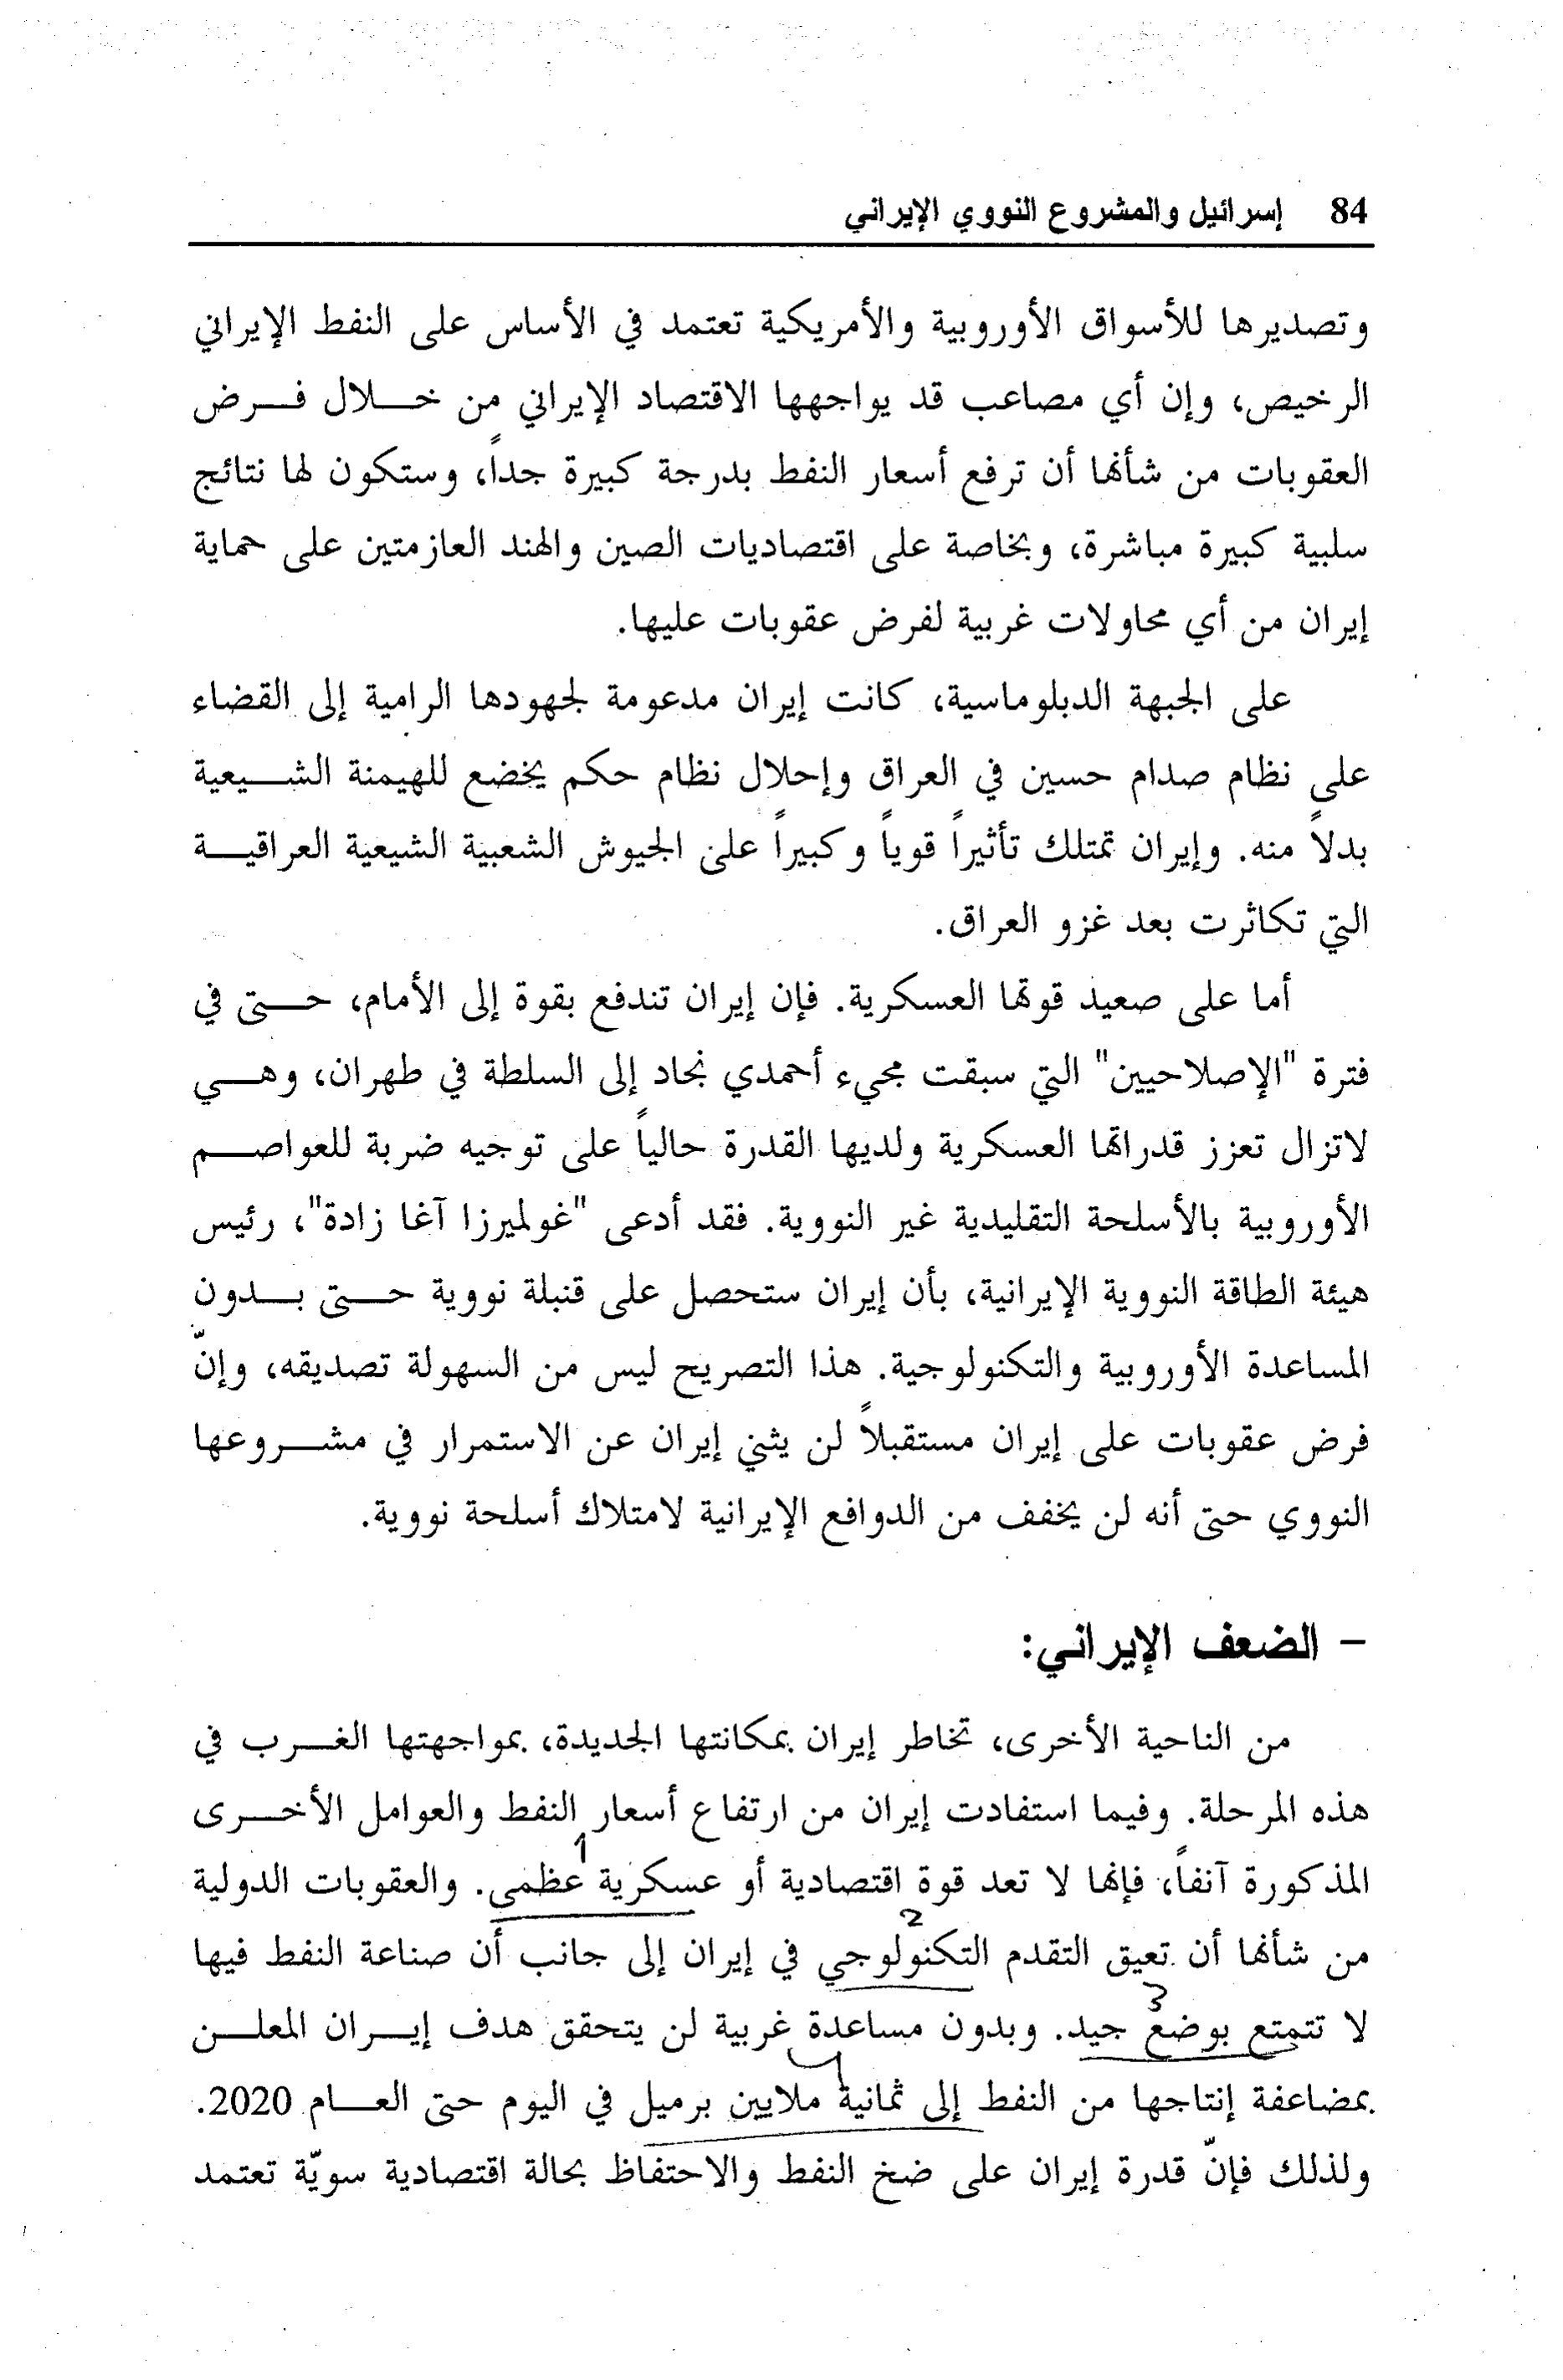 84 إسرائيل والمشروع النووي الإيراني
وتصديرها للأسواق الأوروبية والأمريكية تعتمد في الأساس على النفط الإيراني
الرخيص، وإن أي مصاعب قد يواجهها الاقتصاد الإيراني من خلال فرض
العقوبات من شأنها أن ترفع أسعار النفط بدرجة كبيرة جداً، وستكون لها نتائج
سلبية كبيرة مباشرة، وبخاصة على اقتصاديات الصين والهند العازمتين على حماية
إيران من أي محاولات غربية لفرض عقوبات عليها.
على الجبهة الدبلوماسية، كانت إيران مدعومة لجهودها الرامية إلى القضاء
على نظام صدام حسين في العراق وإحلال نظام حكم يخضع للهيمنة الشيعية
بدلاً منه. وإيران تمتلك تأثيراً قوياً وكبيراً على الجيوش الشعبية الشيعية العراقية
التي تكاثرت بعد غزو العراق.
أما على صعيد قوتها العسكرية. فإن إيران تندفع بقوة إلى الأمام، حتى في
فترة "الإصلاحيين" التي سبقت مجيء أحمدي نجاد إلى السلطة في طهران، وهي
لاتزال تعزز قدراتها العسكرية ولديها القدرة حالياً على توجيه ضربة للعواصم
الأوروبية بالأسلحة التقليدية غير النووية. فقد أدعى "غولميرزا آغا زادة"، رئيس
هيئة الطاقة النووية الإيرانية، بأن إيران ستحصل على قنبلة نووية حتى بدون
المساعدة الأوروبية والتكنولوجية. هذا التصريح ليس من السهولة تصديقه، وإنّ
فرض عقوبات على إيران مستقبلاً لن يثني إيران عن الاستمرار في مشروعها
النووي حتى أنه لن يخفف من الدوافع الإيرانية لامتلاك أسلحة نووية.
– الضعف الإيراني:
من الناحية الأخرى، تخاطر إيران بمكانتها الجديدة، بمواجهتها الغرب في
هذه المرحلة. وفيما استفادت إيران من ارتفاع أسعار النفط والعوامل الأخرى
1
المذكورة آنفاً، فإنها لا تعد قوة اقتصادية أو عسكرية عظمى. والعقوبات الدولية
2
من شأنها أن تعيق التقدم التكنولوجي في إيران إلى جانب أن صناعة النفط فيها
3
لا تتمتع بوضع جيد. وبدون مساعدة غربية لن يتحقق هدف إيران المعلن
بمضاعفة إنتاجها من النفط إلى ثمانية ملايين برميل في اليوم حتى العام 2020.
ولذلك فإنّ قدرة إيران على ضخ النفط والاحتفاظ بحالة اقتصادية سويّة تعتمد